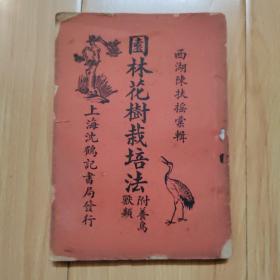 西湖陳扶搖彙輯
園林花樹栽培法
附養鳥獸類
上海沈鶴記書局發行